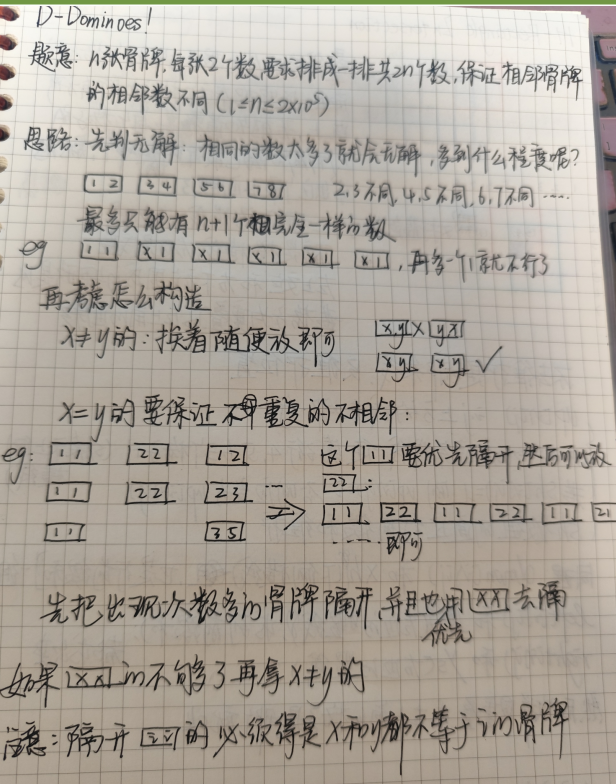 D-Dominoes!
题意: n张骨牌,每张2个数,要求排成一排共2n个数,保证相邻骨牌
的相邻数不同 (1≤n≤2×10⁵)
思路: 先判无解: 相同的数太多了就会无解,多到什么程度呢?
1 2 3 4 5 6 7 8 2,3不同,4,5不同,6,7不同……
最多只能有n+1个完全一样的数
eg 1 1 X 1 X 1 X 1 X 1 X 1 ,再多一个1就不行了
再考虑怎么构造
X≠y的: 挨着随便放即可 x,y X y x
x y x y ✓
X=y的要保证不重复的不相邻:
eg: 1 1 2 2 1 2 这个 1 1 要优先隔开,然后可以放
1 1 2 2 2 3 … 2 2 :
1 1 3 5 ⇒ 1 1 2 2 1 1 2 2 1 1 2 1
…… 即可
先把出现次数多的骨牌隔开,并且也用 X X 去隔
优先
如果 X X 的不够了再拿 X≠y的
注意: 隔开 i i 的必须得是X和y都不等于i的骨牌